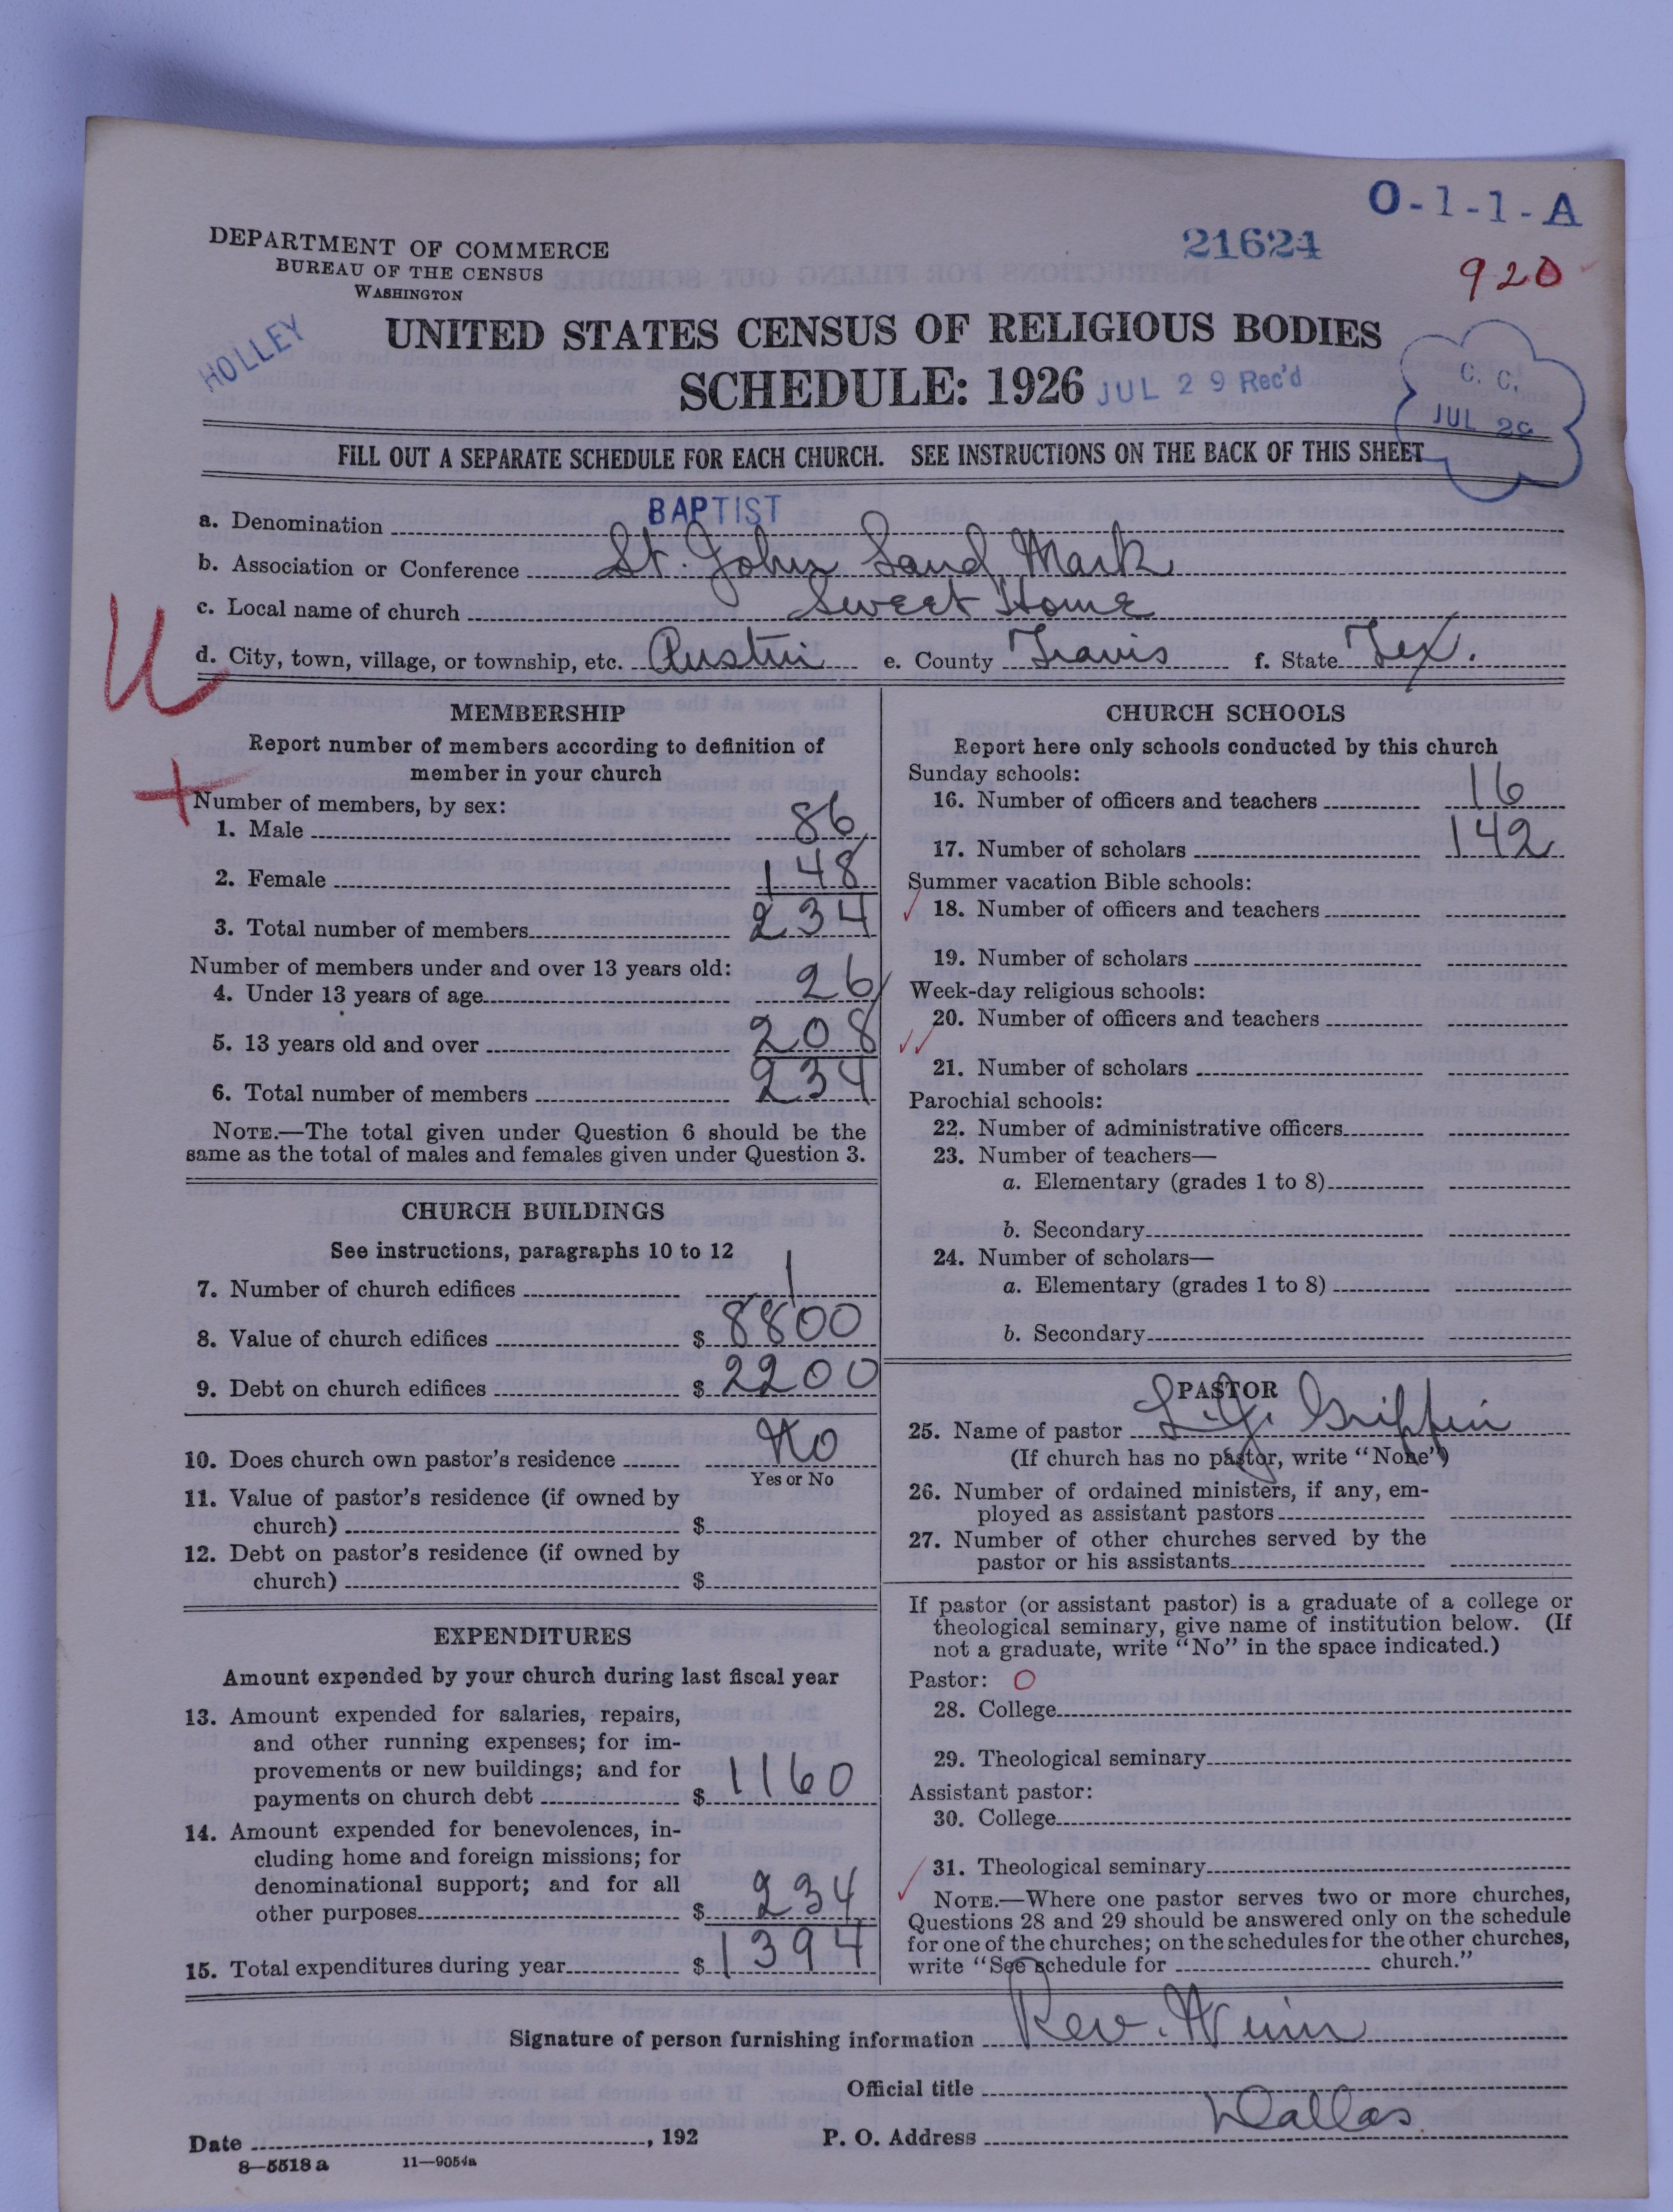 O-1-1-A
DEPARTMENT OF COMMERCE
BUREAU OF THE CENSUS
WASHINGTON
21624
920
HOLLEY
UNITED STATES CENSUS OF RELIGIOUS BODIES
SCHEDULE: 1926
JUL 29 Rec'd
C. C.
JUL 29
FILL OUT A SEPARATE SCHEDULE FOR EACH CHURCH. SEE INSTRUCTIONS ON THE BACK OF THIS SHEET
a. Denomination BAPTIST
b. Association or Conference St. John Land Mark
c. Local name of church Sweet Home
d. City, town, village, or township, etc. Austin e. County Travis f. State Tex.
MEMBERSHIP
Report number of members according to definition of
member in your church
Number of members, by sex:
1. Male 86
2. Female 148
3. Total number of members 234
Number of members under and over 13 years old:
4. Under 13 years of age 26
5. 13 years old and over 208
6. Total number of members 234
NOTE.—The total given under Question 6 should be the
same as the total of males and females given under Question 3.
CHURCH BUILDINGS
See instructions, paragraphs 10 to 12
7. Number of church edifices 1
8. Value of church edifices $ 8800
9. Debt on church edifices $ 2200
10. Does church own pastor's residence No
Yes or No
11. Value of pastor's residence (if owned by
church) $
12. Debt on pastor's residence (if owned by
church) $
EXPENDITURES
Amount expended by your church during last fiscal year
13. Amount expended for salaries, repairs,
and other running expenses; for im-
provements or new buildings; and for
payments on church debt $ 1160
14. Amount expended for benevolences, in-
cluding home and foreign missions; for
denominational support; and for all
other purposes $ 234
15. Total expenditures during year $ 1394
CHURCH SCHOOLS
Report here only schools conducted by this church
Sunday schools:
16. Number of officers and teachers 16
17. Number of scholars 142
Summer vacation Bible schools:
18. Number of officers and teachers
19. Number of scholars
Week-day religious schools:
20. Number of officers and teachers
21. Number of scholars
Parochial schools:
22. Number of administrative officers
23. Number of teachers—
a. Elementary (grades 1 to 8)
b. Secondary
24. Number of scholars—
a. Elementary (grades 1 to 8)
b. Secondary
PASTOR
25. Name of pastor L. J. Griffin
(If church has no pastor, write "None")
26. Number of ordained ministers, if any, em-
ployed as assistant pastors
27. Number of other churches served by the
pastor or his assistants
If pastor (or assistant pastor) is a graduate of a college or
theological seminary, give name of institution below. (If
not a graduate, write "No" in the space indicated.)
Pastor: O
28. College
29. Theological seminary
Assistant pastor:
30. College
31. Theological seminary
NOTE.—Where one pastor serves two or more churches,
Questions 28 and 29 should be answered only on the schedule
for one of the churches; on the schedules for the other churches,
write "See schedule for church."
Signature of person furnishing information Rev. Winn
Official title
Date , 192 P. O. Address Dallas
8—5518 a 11—9054a